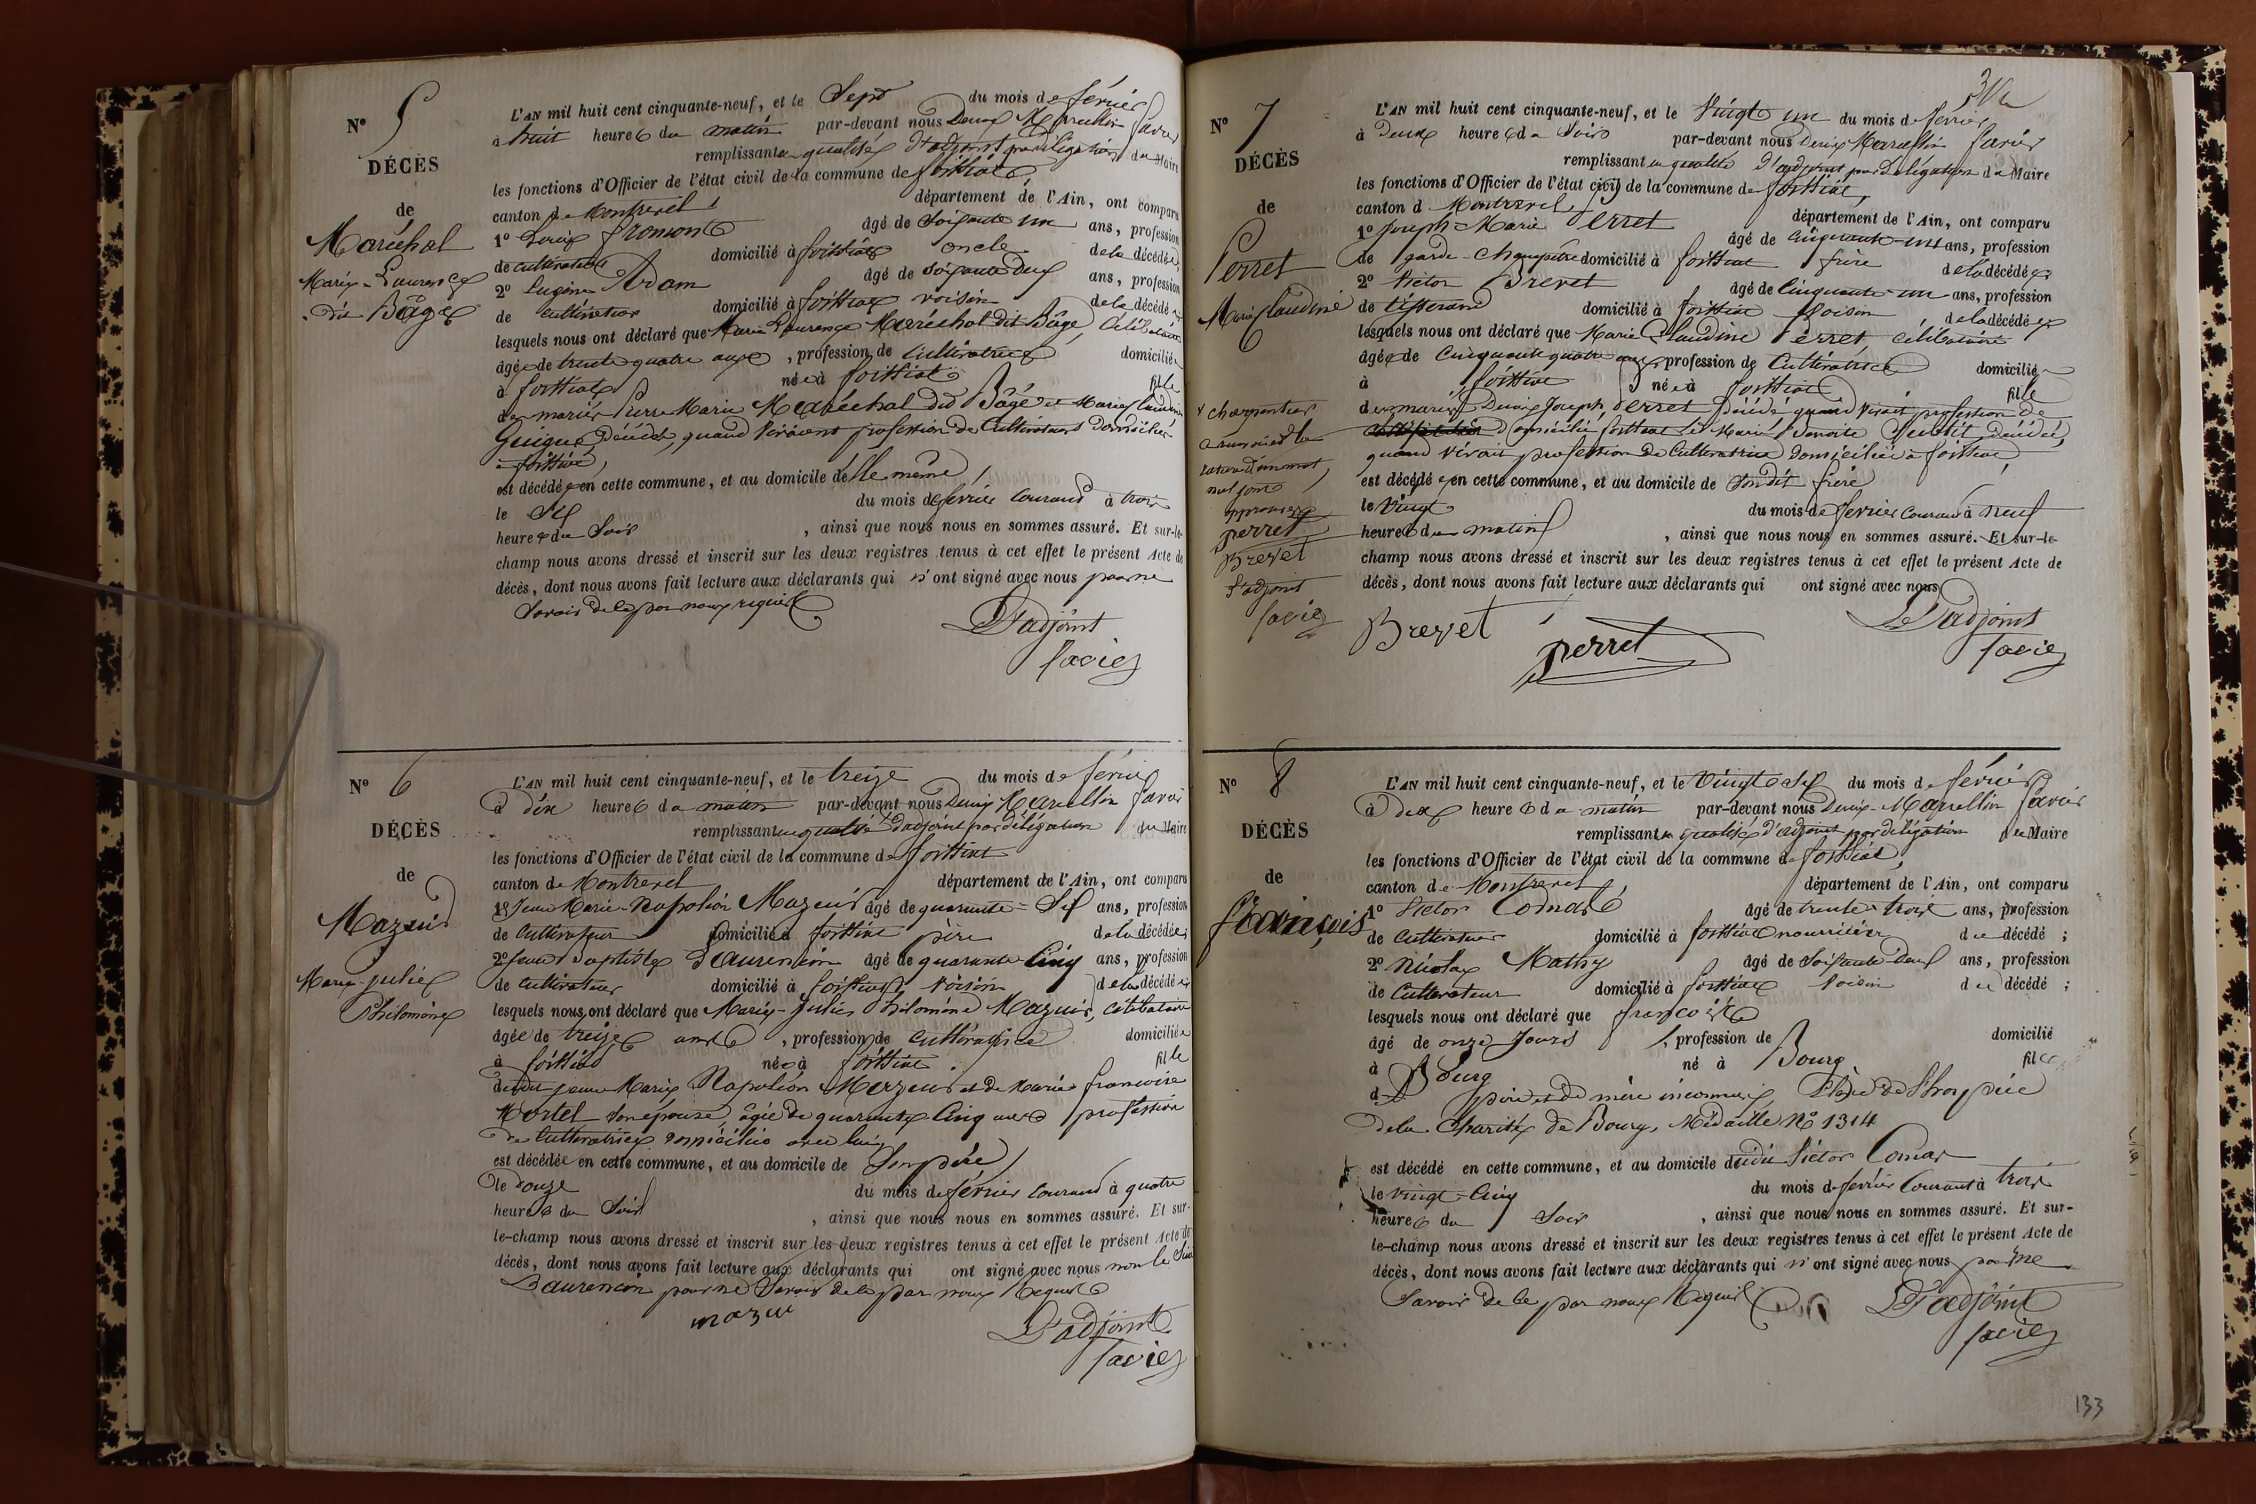 N° 5
DÉCÈS
de
Maréchal
Marie-Laurence
dit Bâge
L'AN mil huit cent cinquante-neuf, et le Sept du mois de février
à huit heures du matin par-devant nous Denis Marcellin favier
remplissant en qualité d'adjoint par délégation du Maire
les fonctions d'Officier de l'état civil de la commune de foissiat
canton de Montrevel, département de l'Ain, ont comparu
1° Denis fromont âgé de Soixante un ans, profession
de cultivateur domicilié à foissiat oncle de la décédée,
2° Eugène Adam âgé de soixante deux ans, profession
de cultivateur domicilié à foissiat voisin de la décédée
lesquels nous ont déclaré que Marie Laurence Maréchal dit Bâge, Célibataire
âgée de trente quatre ans, profession de Cultivatrice domiciliée
à foissiat née à foissiat fille
des mariés Pierre Marie Maréchal dit Bâge et Marie Claudine
Guigue Décédés, quand vivaient profession de Cultivateurs domiciliés
à foissiat,
est décédée en cette commune, et au domicile d'elle même,
le Six du mois de février courant à trois
heures du Soir, ainsi que nous nous en sommes assuré. Et sur-le-
champ nous avons dressé et inscrit sur les deux registres tenus à cet effet le présent Acte de
décès, dont nous avons fait lecture aux déclarants qui n'ont signé avec nous pour ne
Savoir de ce par nous requis
L'adjoint
favier
N° 6
DÉCÈS
de
Mazuir
Marie-julie
Philomène
L'AN mil huit cent cinquante-neuf, et le treize du mois de février
à dix heures du matin par-devant nous Denis Marcellin favier
remplissant en qualité d'adjoint par délégation du Maire
les fonctions d'Officier de l'état civil de la commune de foissiat
canton de Montrevel département de l'Ain, ont comparu
1° Jean Marie-Napoléon Mazuir âgé de quarante-Six ans, profession
de Cultivateur domicilié à foissiat père de la décédée,
2° Jean Baptiste Laurencin âgé de quarante Cinq ans, profession
de Cultivateur domicilié à foissiat, voisin de la décédée
lesquels nous ont déclaré que Marie-Julie Philomène Mazuir, célibataire
âgée de treize ans, profession de cultivatrice domiciliée
à foissiat née à foissiat fille
dudit jean Marie Napoléon Mazuir et de Marie francoise
Mortel son épouse, âgée de quarante Cinq ans profession
de Cultivatrice domiciliée avec lui,
est décédée en cette commune, et au domicile de Son père,
le douze du mois de février courant à quatre
heures du Soir, ainsi que nous nous en sommes assuré. Et sur-
le-champ nous avons dressé et inscrit sur les deux registres tenus à cet effet le présent Acte de
décès, dont nous avons fait lecture aux déclarants qui ont signé avec nous non le Sieur
Laurencin pour ne Savoir de ce par nous Requis
mazuir
L'adjoint
favier
N° 7
DÉCÈS
de
Perret
Marie Claudine
L'AN mil huit cent cinquante-neuf, et le Vingt un du mois de février
à Deux heures du Soir par-devant nous Denis Marcellin favier
remplissant en qualité d'adjoint par Délégation du Maire
les fonctions d'Officier de l'état civil de la commune de foissiat,
canton d Montrevel, département de l'Ain, ont comparu
1° Joseph-Marie Perret âgé de Cinquante-un ans, profession
de garde-Champêtre domicilié à foissiat frère de la décédée,
2° Victor Brevet âgé de Cinquante-un ans, profession
de tisserand domicilié à foissiat voisin de la décédée
lesquels nous ont déclaré que Marie Claudine Perret, célibataire
âgée de Cinquante quatre ans, profession de Cultivatrice domiciliée
à foissiat née à foissiat fille
des mariés Denis Joseph Perret, Décédé quand vivait profession de
domicilié foissiat et Marie Benoite décédée,
quand vivait profession de Cultivatrice domiciliée à foissiat
est décédée en cette commune, et au domicile de Son dit frère
le Vingt du mois de février courant à neuf
heures du matin, ainsi que nous nous en sommes assuré. Et sur-le-
champ nous avons dressé et inscrit sur les deux registres tenus à cet effet le présent Acte de
décès, dont nous avons fait lecture aux déclarants qui ont signé avec nous
+ charpentier
nul
approuvé
perret
Brevet
L'adjoint
favier
Brevet
perret
L'adjoint
favier
N° 8
DÉCÈS
de
françois
L'AN mil huit cent cinquante-neuf, et le Vingt Six du mois de février
à dix heures du matin par-devant nous Denis-Marcellin favier
remplissant en qualité d'adjoint par délégation du Maire
les fonctions d'Officier de l'état civil de la commune de foissiat,
canton de Montrevel, département de l'Ain, ont comparu
1° Victor Comas âgé de trente-trois ans, profession
de cultivateur domicilié à foissiat nourricier du décédé ;
2° Nicolas Mathy âgé de Soixante-deux ans, profession
de Cultivateur domicilié à foissiat voisin du décédé ;
lesquels nous ont déclaré que françois
âgé de onze Jours, profession de domicilié
à Bourg né à Bourg fils
de père et de mère inconnus, Elève de l'hospice
de la Charité de Bourg, Médaille N° 1314
est décédé en cette commune, et au domicile dudit Victor Comas
le vingt-Cinq du mois de février Courant à trois
heures du Soir, ainsi que nous nous en sommes assuré. Et sur-
le-champ nous avons dressé et inscrit sur les deux registres tenus à cet effet le présent Acte de
décès, dont nous avons fait lecture aux déclarants qui n'ont signé avec nous pour ne
Savoir de ce par nous Requis
L'adjoint
favier
133